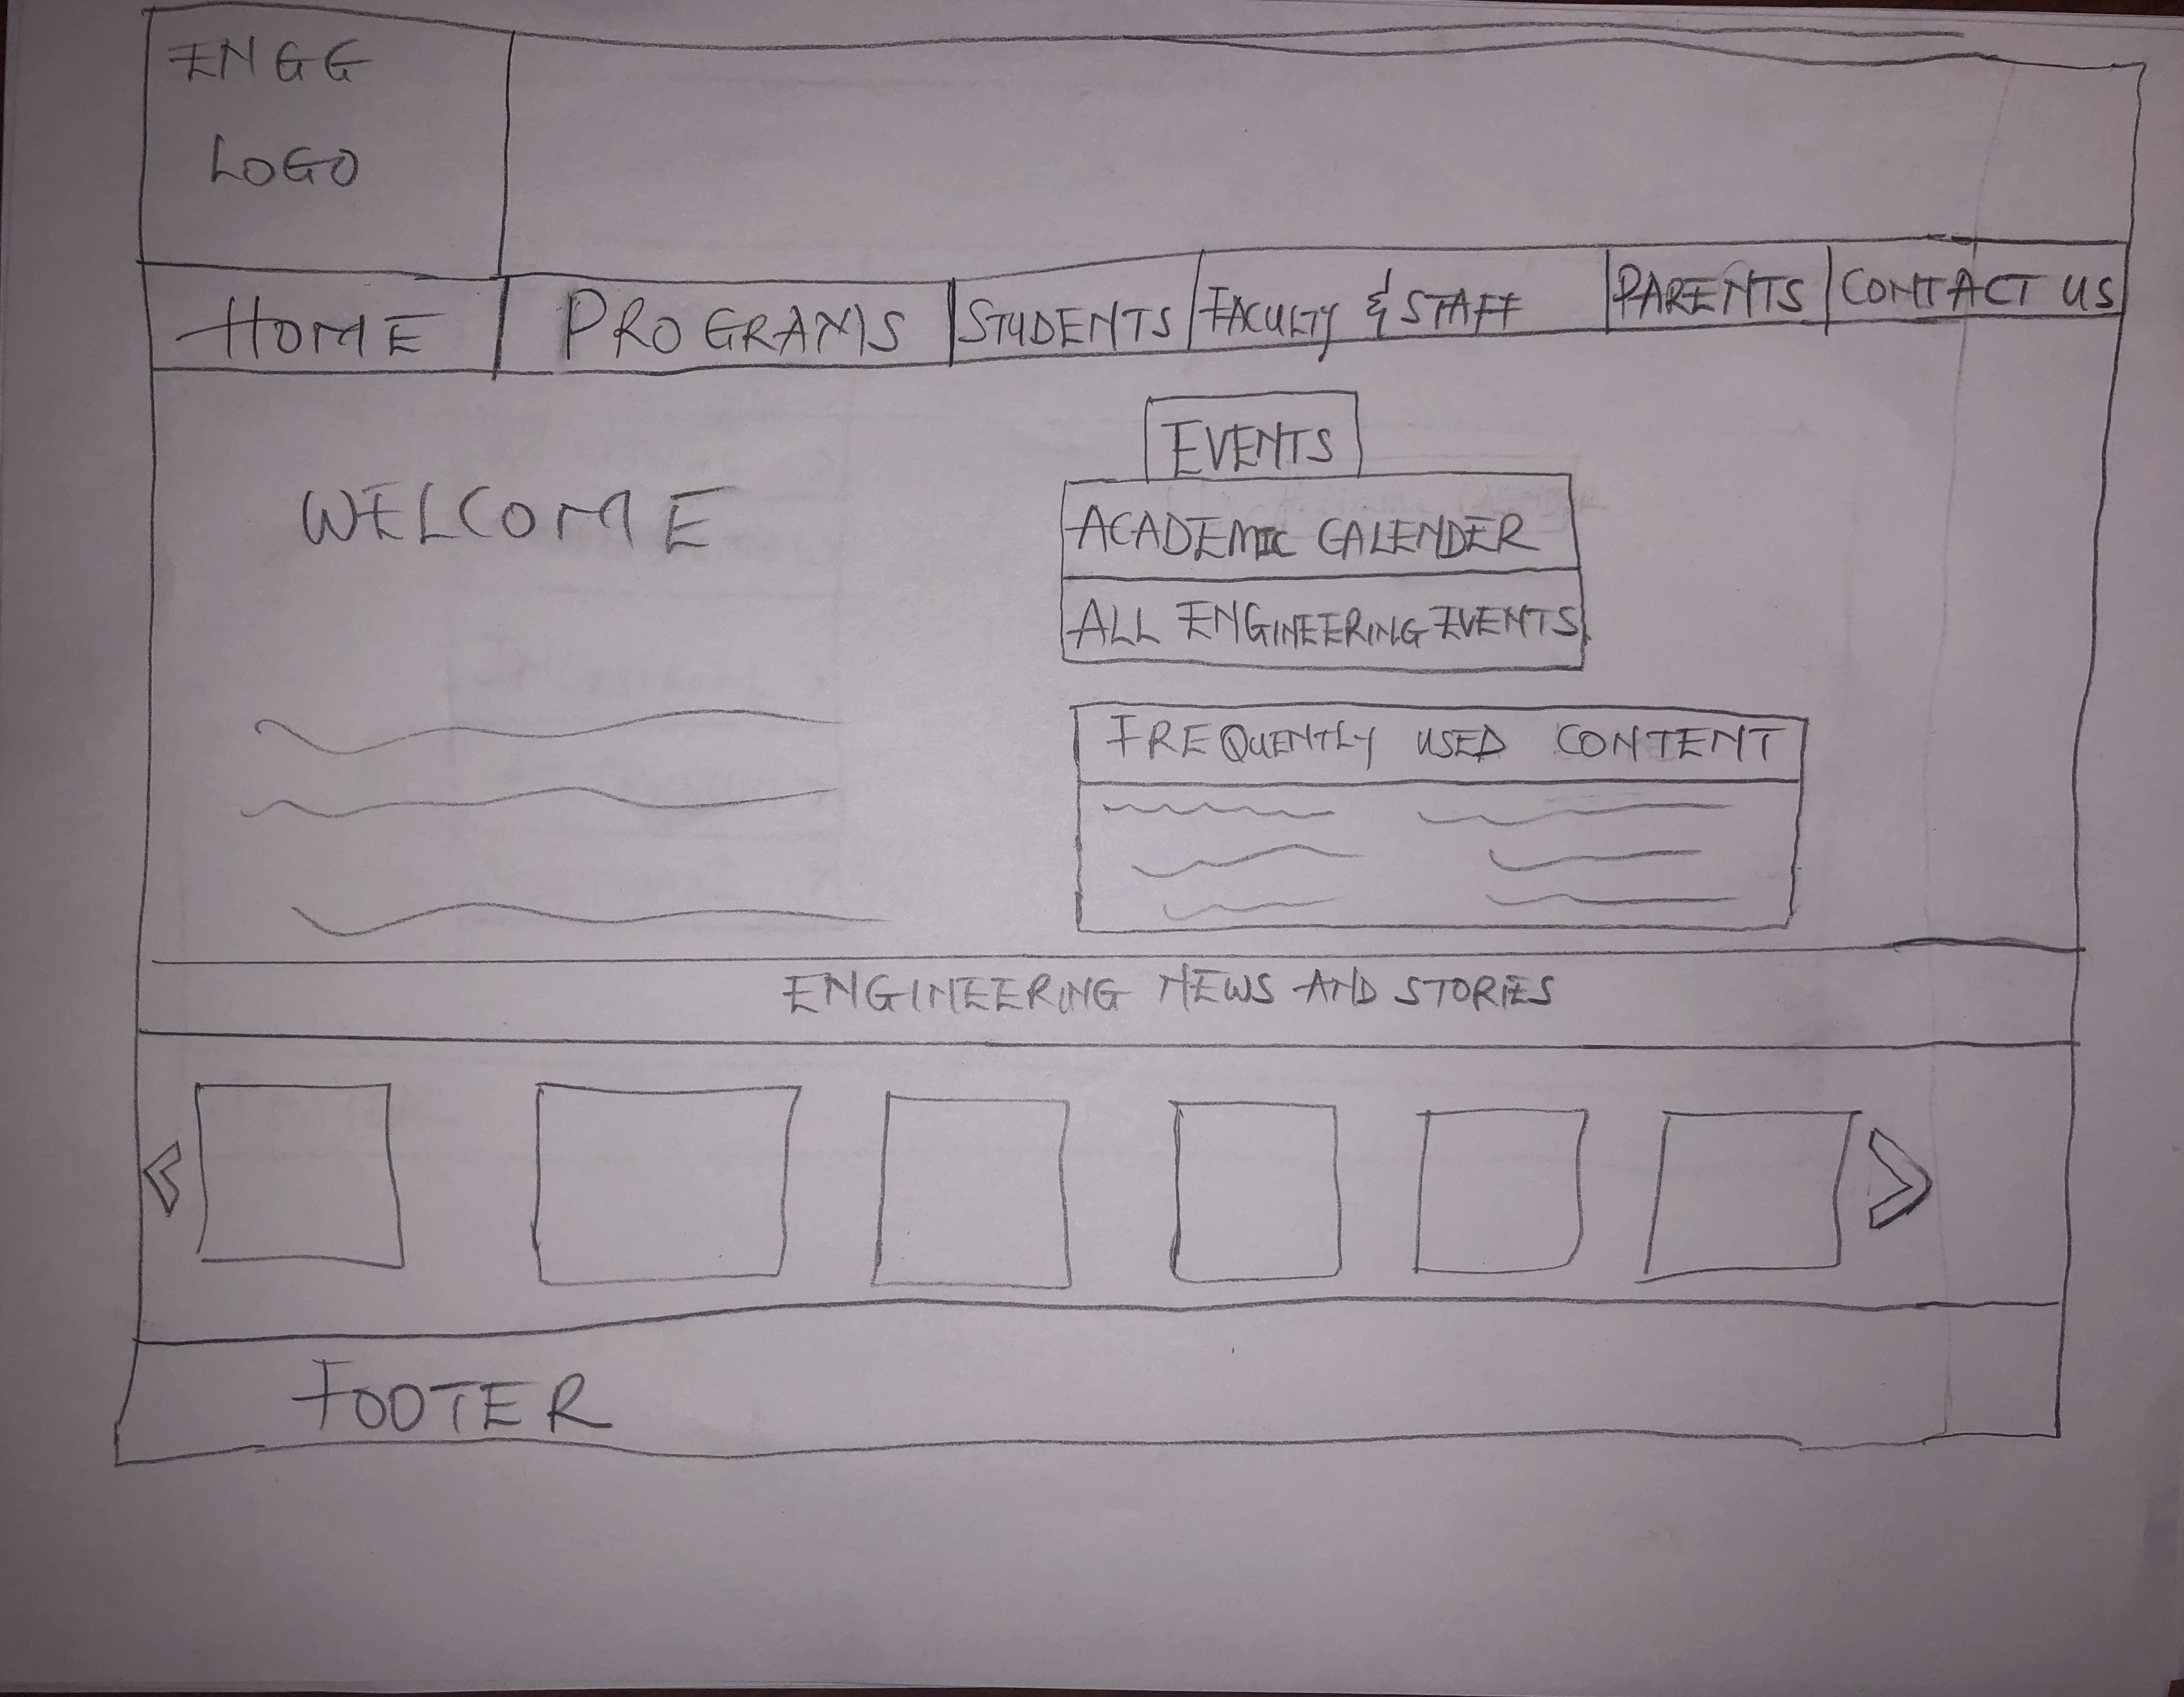 ENGG
LOGO
HOME PROGRAMS STUDENTS FACULTY & STAFF PARENTS CONTACT US
EVENTS
WELCOME
ACADEMIC CALENDER
ALL ENGINEERING EVENTS
FREQUENTLY USED CONTENT
ENGINEERING NEWS AND STORIES
FOOTER